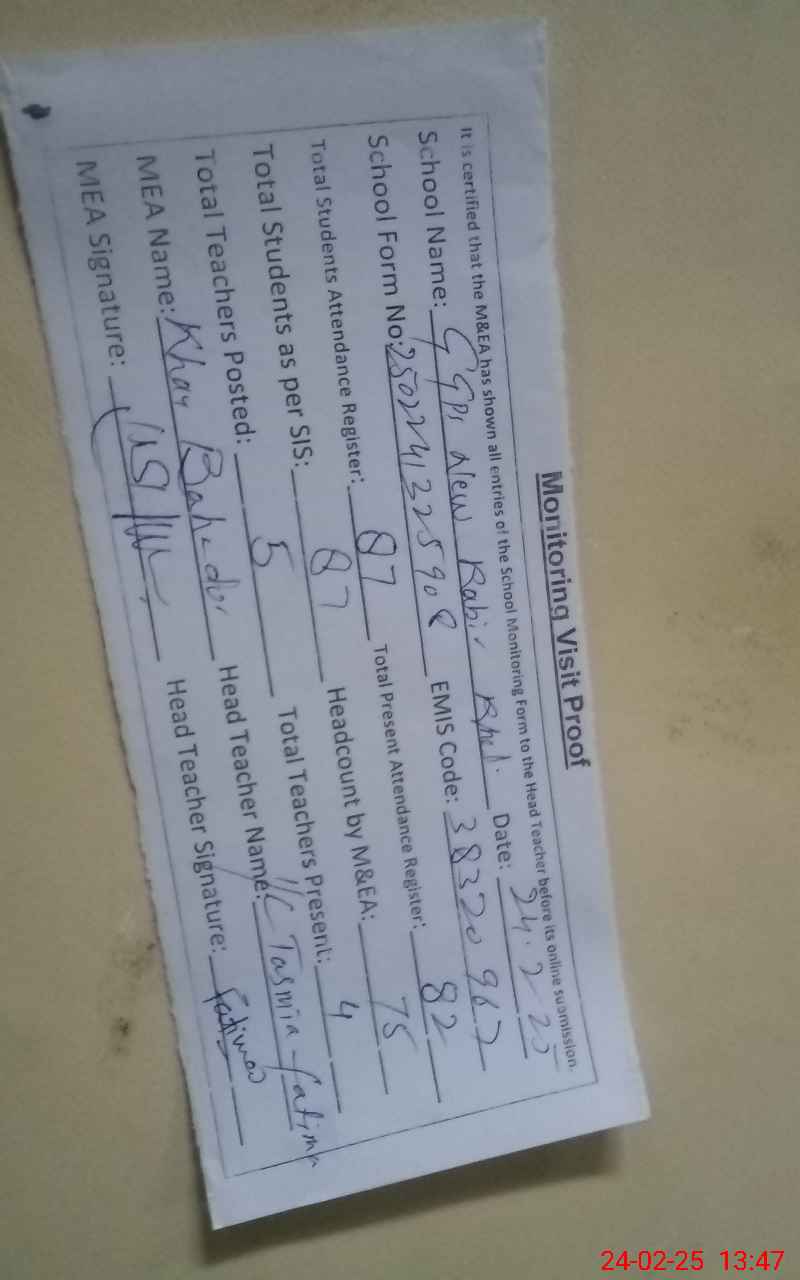 Monitoring Visit Proof
It is certified that the M&EA has shown all entries of the School Monitoring Form to the Head Teacher before its online submission.
School Name: GGPS New Kabir Khel. Date: 24.2.25
School Form No: 25022413225908 EMIS Code: 38320967
Total Students Attendance Register: 87 Total Present Attendance Register: 82
Total Students as per SIS: 87 Headcount by M&EA: 75
Total Teachers Posted: 5 Total Teachers Present: 4
MEA Name: Khan Bahadur Head Teacher Name: I/C Tasmia Fatima
MEA Signature: Head Teacher Signature: Fatima
24-02-25 13:47